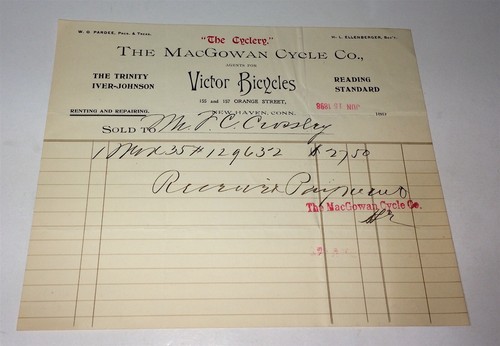 W. G. PARDEE, PRES. & TREAS.
H. L. ELLENBERGER, SEC'Y.
"The Cyclery."
THE MACGOWAN CYCLE CO.,
AGENTS FOR
THE TRINITY
IVER-JOHNSON
Victor Bicycles
READING
STANDARD
155 and 157 ORANGE STREET,
NEW HAVEN, CONN.
RENTING AND REPAIRING.
SOLD TO Mr. F. C. Crossley
1 35 # 129632 $ 27.50
Received Payment
The MacGowan Cycle Co.